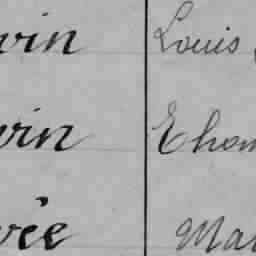 vin Louis
vin Thom
vée Mar